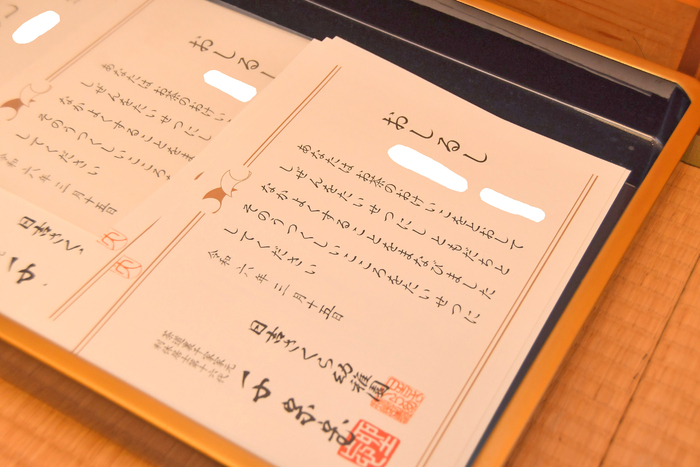 おしるし
あなたは お茶のおけいこをとおして
しぜんをたいせつにし ともだちと
なかよくすることをまなびました
そのうつくしいこころをたいせつに
してください
令和六年三月十五日
日吉さくら幼稚園
茶道裏千家家元
利休居士第十六代
おしるし
あなたは お茶のおけい
しぜんをたいせつにし
なかよくすることをま
そのうつくしいこころ
してください
令和六年三月十五日
日吉さくら